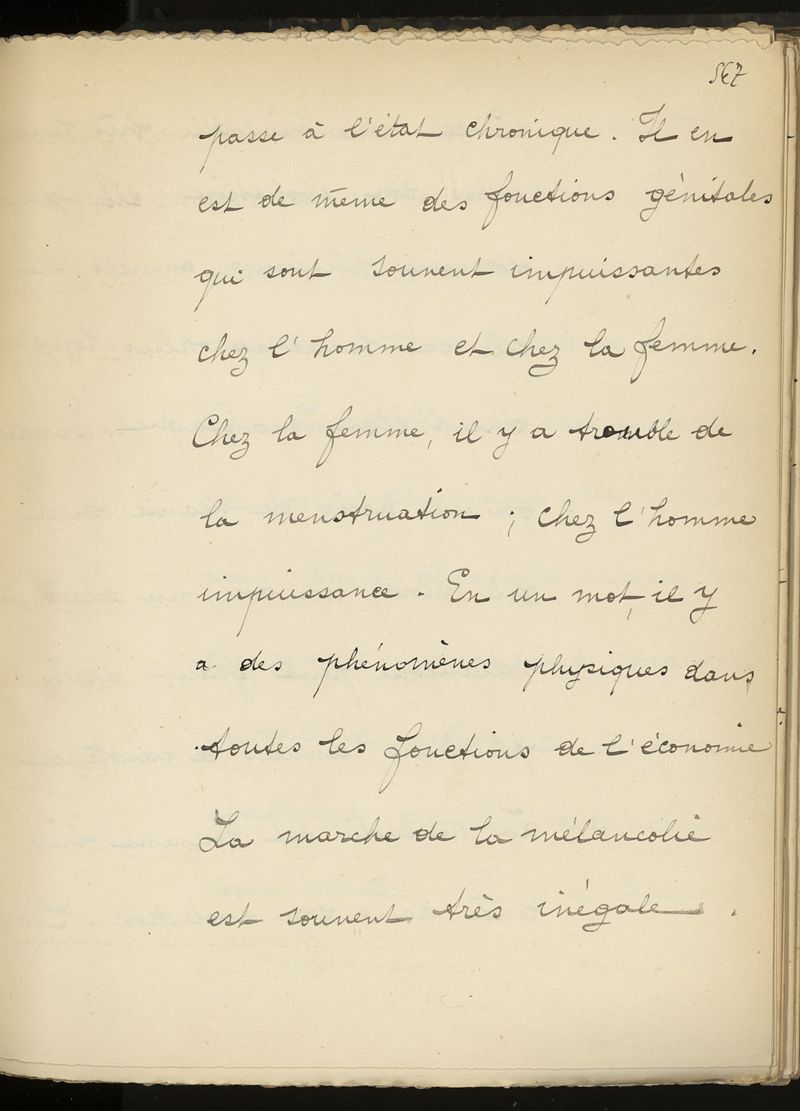 567
passe à l'état chronique. Il en
est de même des fonctions génitales
qui sont souvent impuissantes
chez l'homme et chez la femme.
Chez la femme, il y a trouble de
la menstruation ; chez l'homme
impuissance. En un mot, il y
a des phénomènes physiques dans
toutes les fonctions de l'économie
La marche de la mélancolie
est souvent très inégale.